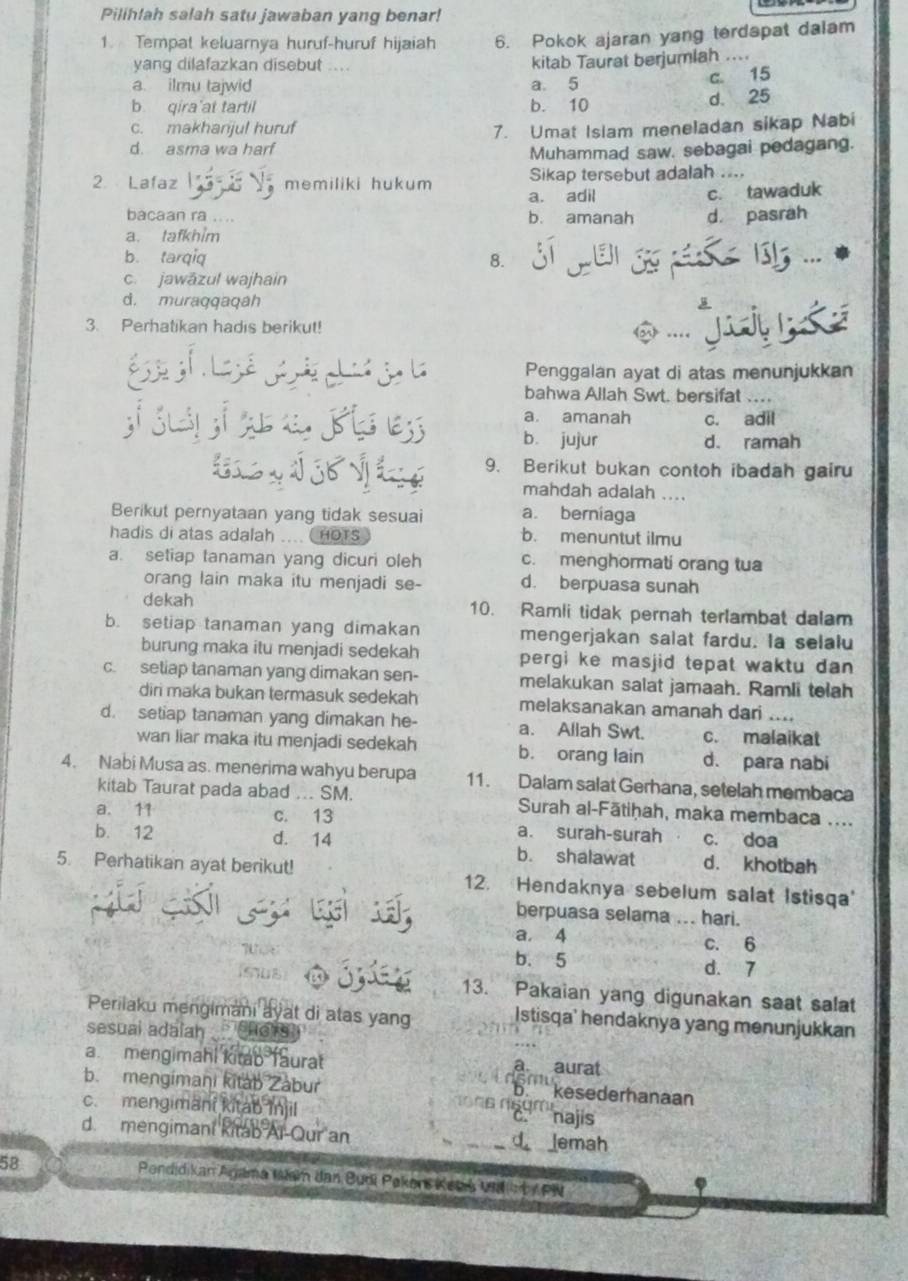 Pilihlah salah satu jawaban yang benar!
1. Tempat keluarnya huruf-huruf hijaiah
yang dilafazkan disebut ....
a. ilmu tajwid
b. qira'at tartil
c. makharijul huruf
d. asma wa harf
2. Lafaz وَلَا تَفَرَّقُوْا memiliki hukum
bacaan ra ....
a. tafkhim
b. tarqiq
c. jawāzul wajhain
d. muraqqaqah
3. Perhatikan hadis berikut!
مَا مِنْ مُسْلِمٍ يَغْرِسُ غَرْسًا، أَوْ يَزْرَعُ
زَرْعًا فَيَأْكُلُ مِنْهُ طَيْرٌ أَوْ إِنْسَانٌ أَوْ
بَهِيْمَةٌ إِلَّا كَانَ لَهُ بِهِ صَدَقَةٌ
Berikut pernyataan yang tidak sesuai
hadis di atas adalah .... HOTS
a. setiap tanaman yang dicuri oleh
orang lain maka itu menjadi se-
dekah
b. setiap tanaman yang dimakan
burung maka itu menjadi sedekah
c. setiap tanaman yang dimakan sen-
diri maka bukan termasuk sedekah
d. setiap tanaman yang dimakan he-
wan liar maka itu menjadi sedekah
4. Nabi Musa as. menerima wahyu berupa
kitab Taurat pada abad ... SM.
a. 11 c. 13
b. 12 d. 14
5. Perhatikan ayat berikut!
وَلَقَدْ اٰتَيْنَا مُوْسَى الْكِتٰبَ لَعَلَّهُمْ
يَهْتَدُوْنَ ﴿٤٩﴾
Perilaku mengimani ayat di atas yang
sesuai adalah HOTS
a. mengimani kitab Taurat
b. mengimani kitab Zabur
c. mengimani kitab Injil
d. mengimani kitab Al-Qur'an
6. Pokok ajaran yang terdapat dalam
kitab Taurat berjumlah ....
a. 5 c. 15
b. 10 d. 25
7. Umat Islam meneladan sikap Nabi
Muhammad saw. sebagai pedagang.
Sikap tersebut adalah ....
a. adil c. tawaduk
b. amanah d. pasrah
8. ... وَإِذَا حَكَمْتُمْ بَيْنَ النَّاسِ أَنْ
تَحْكُمُوْا بِالْعَدْلِ ۗ .... ﴿٥٨﴾
Penggalan ayat di atas menunjukkan
bahwa Allah Swt. bersifat ....
a. amanah c. adil
b. jujur d. ramah
9. Berikut bukan contoh ibadah gairu
mahdah adalah ....
a. berniaga
b. menuntut ilmu
c. menghormati orang tua
d. berpuasa sunah
10. Ramli tidak pernah terlambat dalam
mengerjakan salat fardu. Ia selalu
pergi ke masjid tepat waktu dan
melakukan salat jamaah. Ramli telah
melaksanakan amanah dari ....
a. Allah Swt. c. malaikat
b. orang lain d. para nabi
11. Dalam salat Gerhana, setelah membaca
Surah al-Fātiḥah, maka membaca ....
a. surah-surah c. doa
b. shalawat d. khotbah
12. Hendaknya sebelum salat Istisqa'
berpuasa selama ... hari.
a. 4 c. 6
b. 5 d. 7
13. Pakaian yang digunakan saat salat
Istisqa' hendaknya yang menunjukkan
....
a. aurat
b. kesederhanaan
c. najis
d. lemah
58
Pendidikan Agama Islam dan Budi Pekerti Kelas VIII - 1 / PN